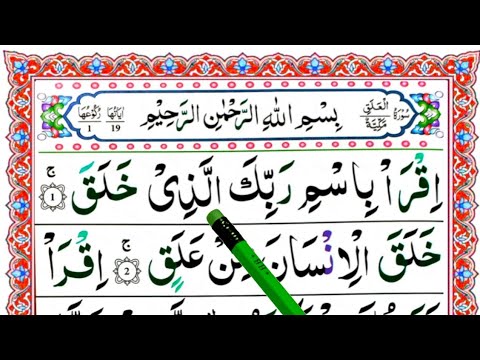 سُوْرَةُ الْعَلَقِ مَكِّيَّةٌ بِسْمِ اللهِ الرَّحْمٰنِ الرَّحِيْمِ اٰيَاتُهَا 19 رُكُوْعُهَا 1
اِقْرَاْ بِاسْمِ رَبِّكَ الَّذِىْ خَلَقَ ۚ 1
خَلَقَ الْاِنْسَانَ مِنْ عَلَقٍ ۚ 2 اِقْرَاْ